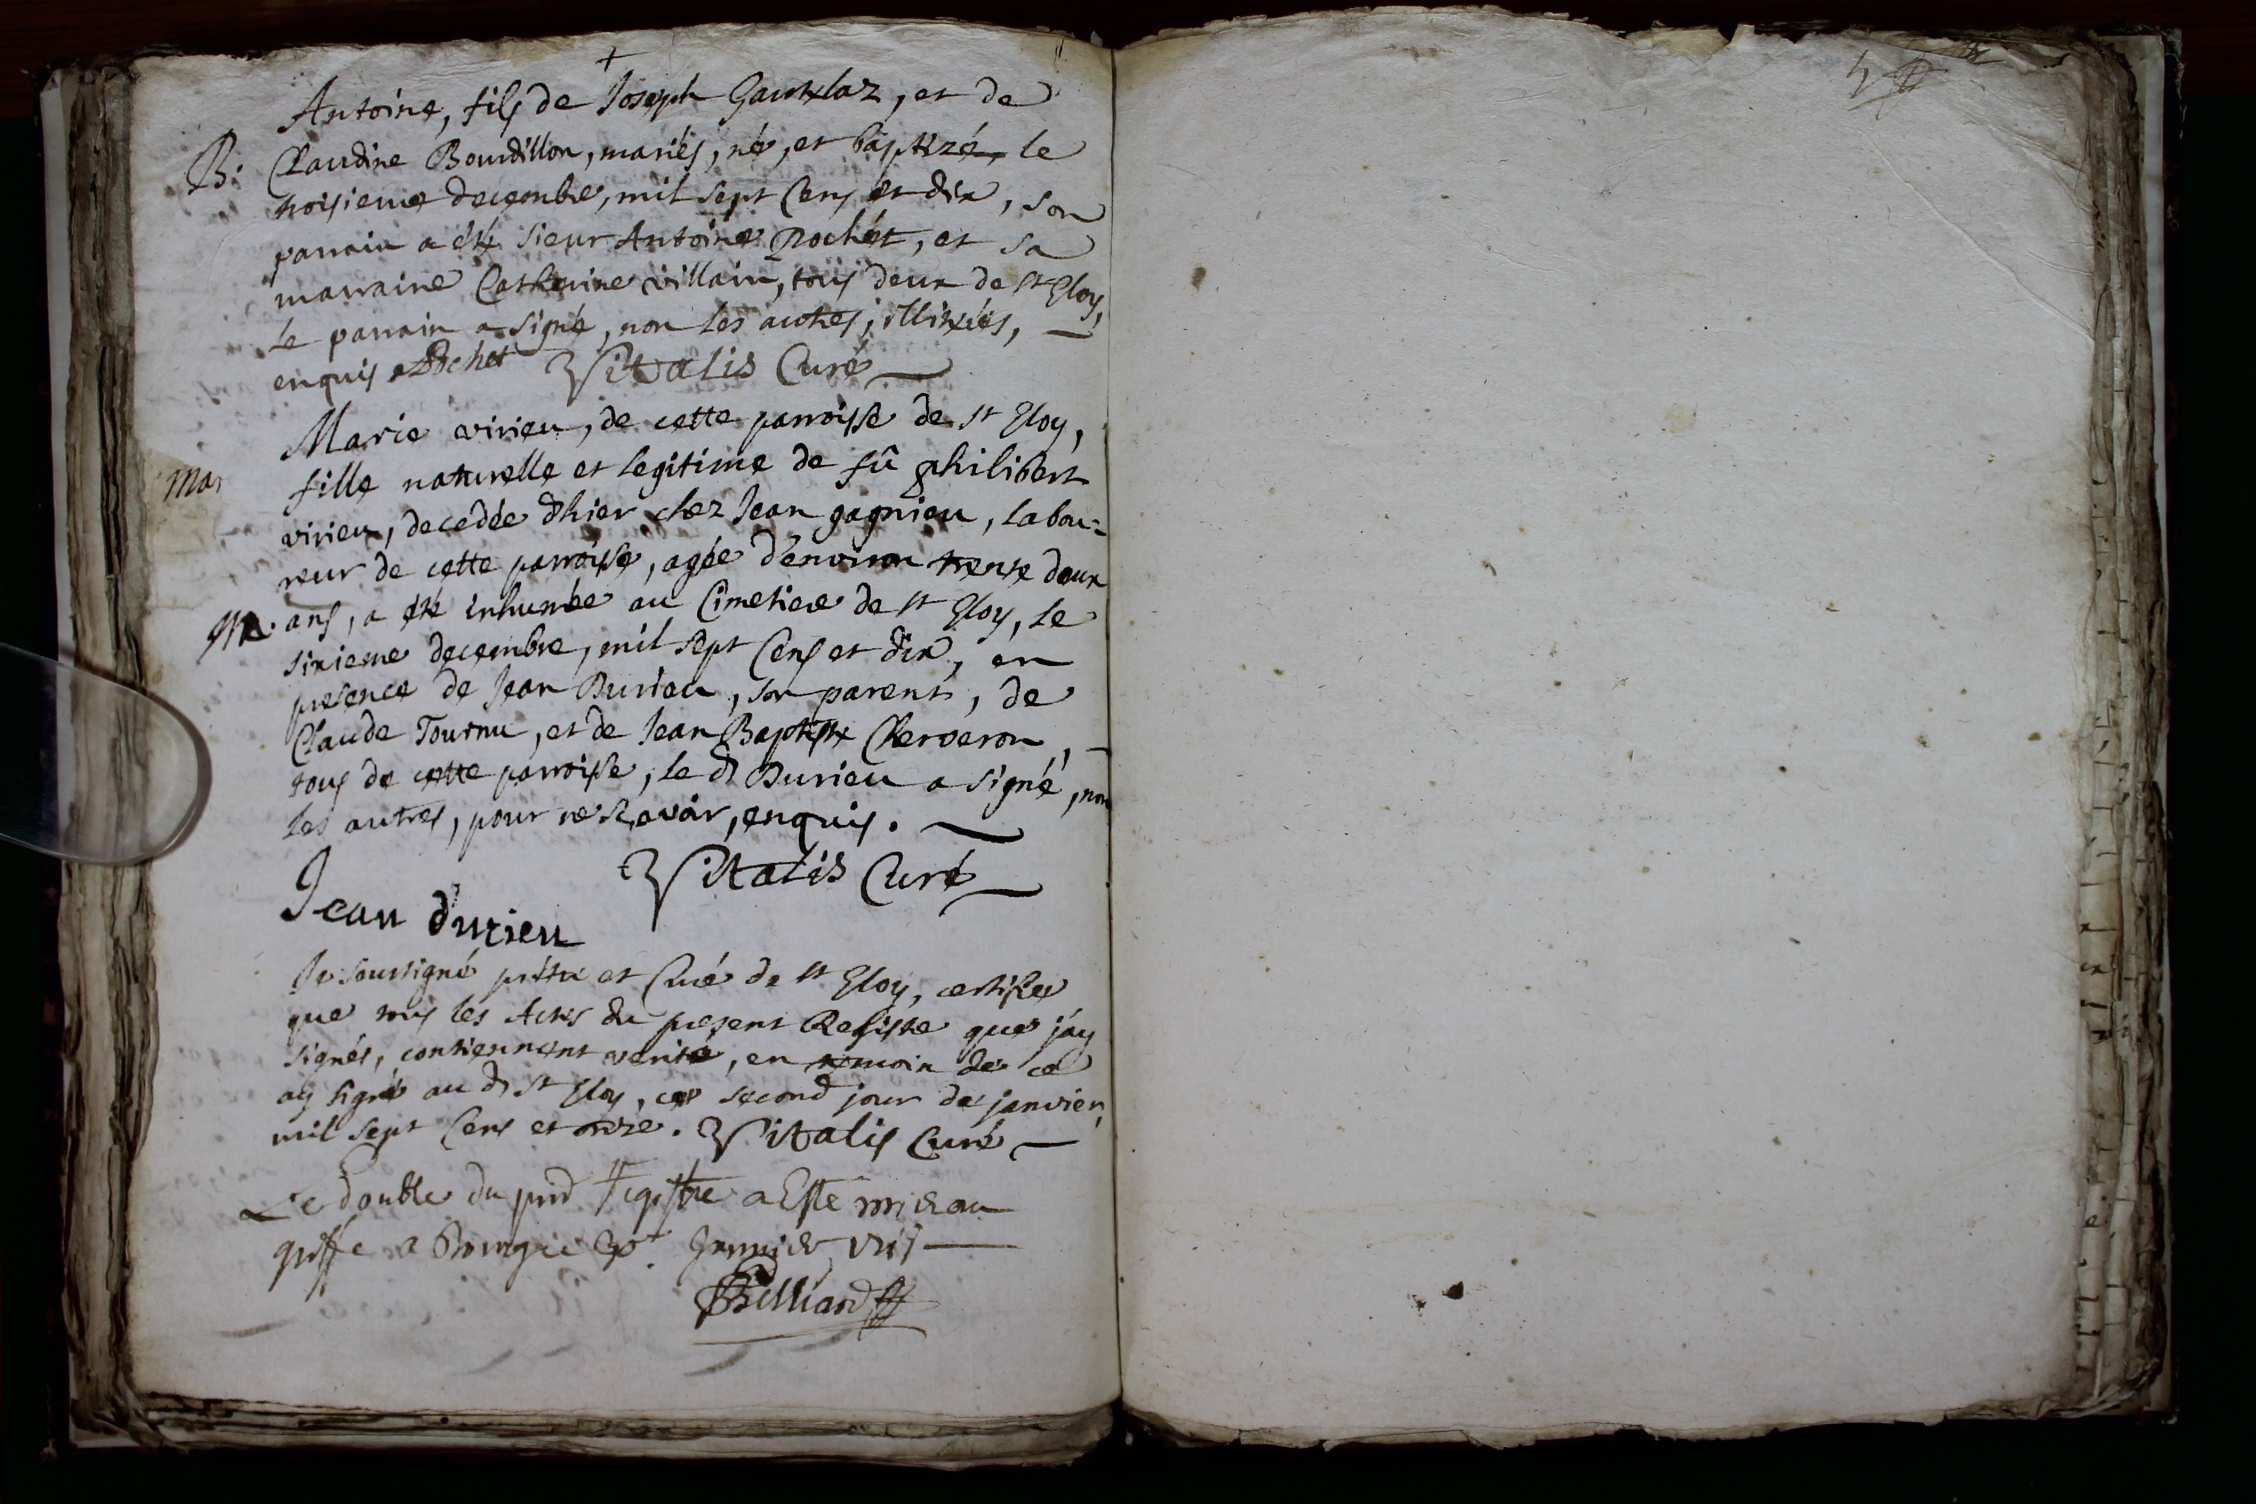 Antoine, fils de Joseph Gautelaz, et de
B. Claudine Bourdillon, mariés, né, et baptizé, le
troisieme decembre, mil sept Cens et dix, son
parrain a été sieur Antoine Rochét, et sa
marraine Catherine villain, tous deux de St Eloy,
le parrain a signé, non les autres, illitérés,
enquis Rochet Vitalis Curé
Marie virieu, de cette parroisse de St Eloy,
Mar fille naturelle et legitime de fû philibert
virieu, decedée d'hier chez Jean gagnieu, labou=
reur de cette parroisse, agée d'environ trente deux
M. ans, a été inhumée au Cimetiere de St Eloy, le
sixieme decembre, mil sept Cens et dix, en
presence de Jean Durieu, son parent, de
Claude Tournu, et de Jean Baptiste Cherveron,
tous de cette parroisse, le dt Durieu a signé, non
les autres, pour ne sçavoir, enquis.
Vitalis Curé
Jean durieu
Je soussigné prêtre et Curé de St Eloy, certifie
que tous les Actes du present Registre que j'ay
signés, contiennent verité, en temoin de ce
ay signé au dt St Eloy, ce second jour de janvier,
mil sept Cens et onze. Vitalis Curé
Le double du pnt Registre a Esté mis au
greffe a Bourg ce Janvier 1711
Billiard